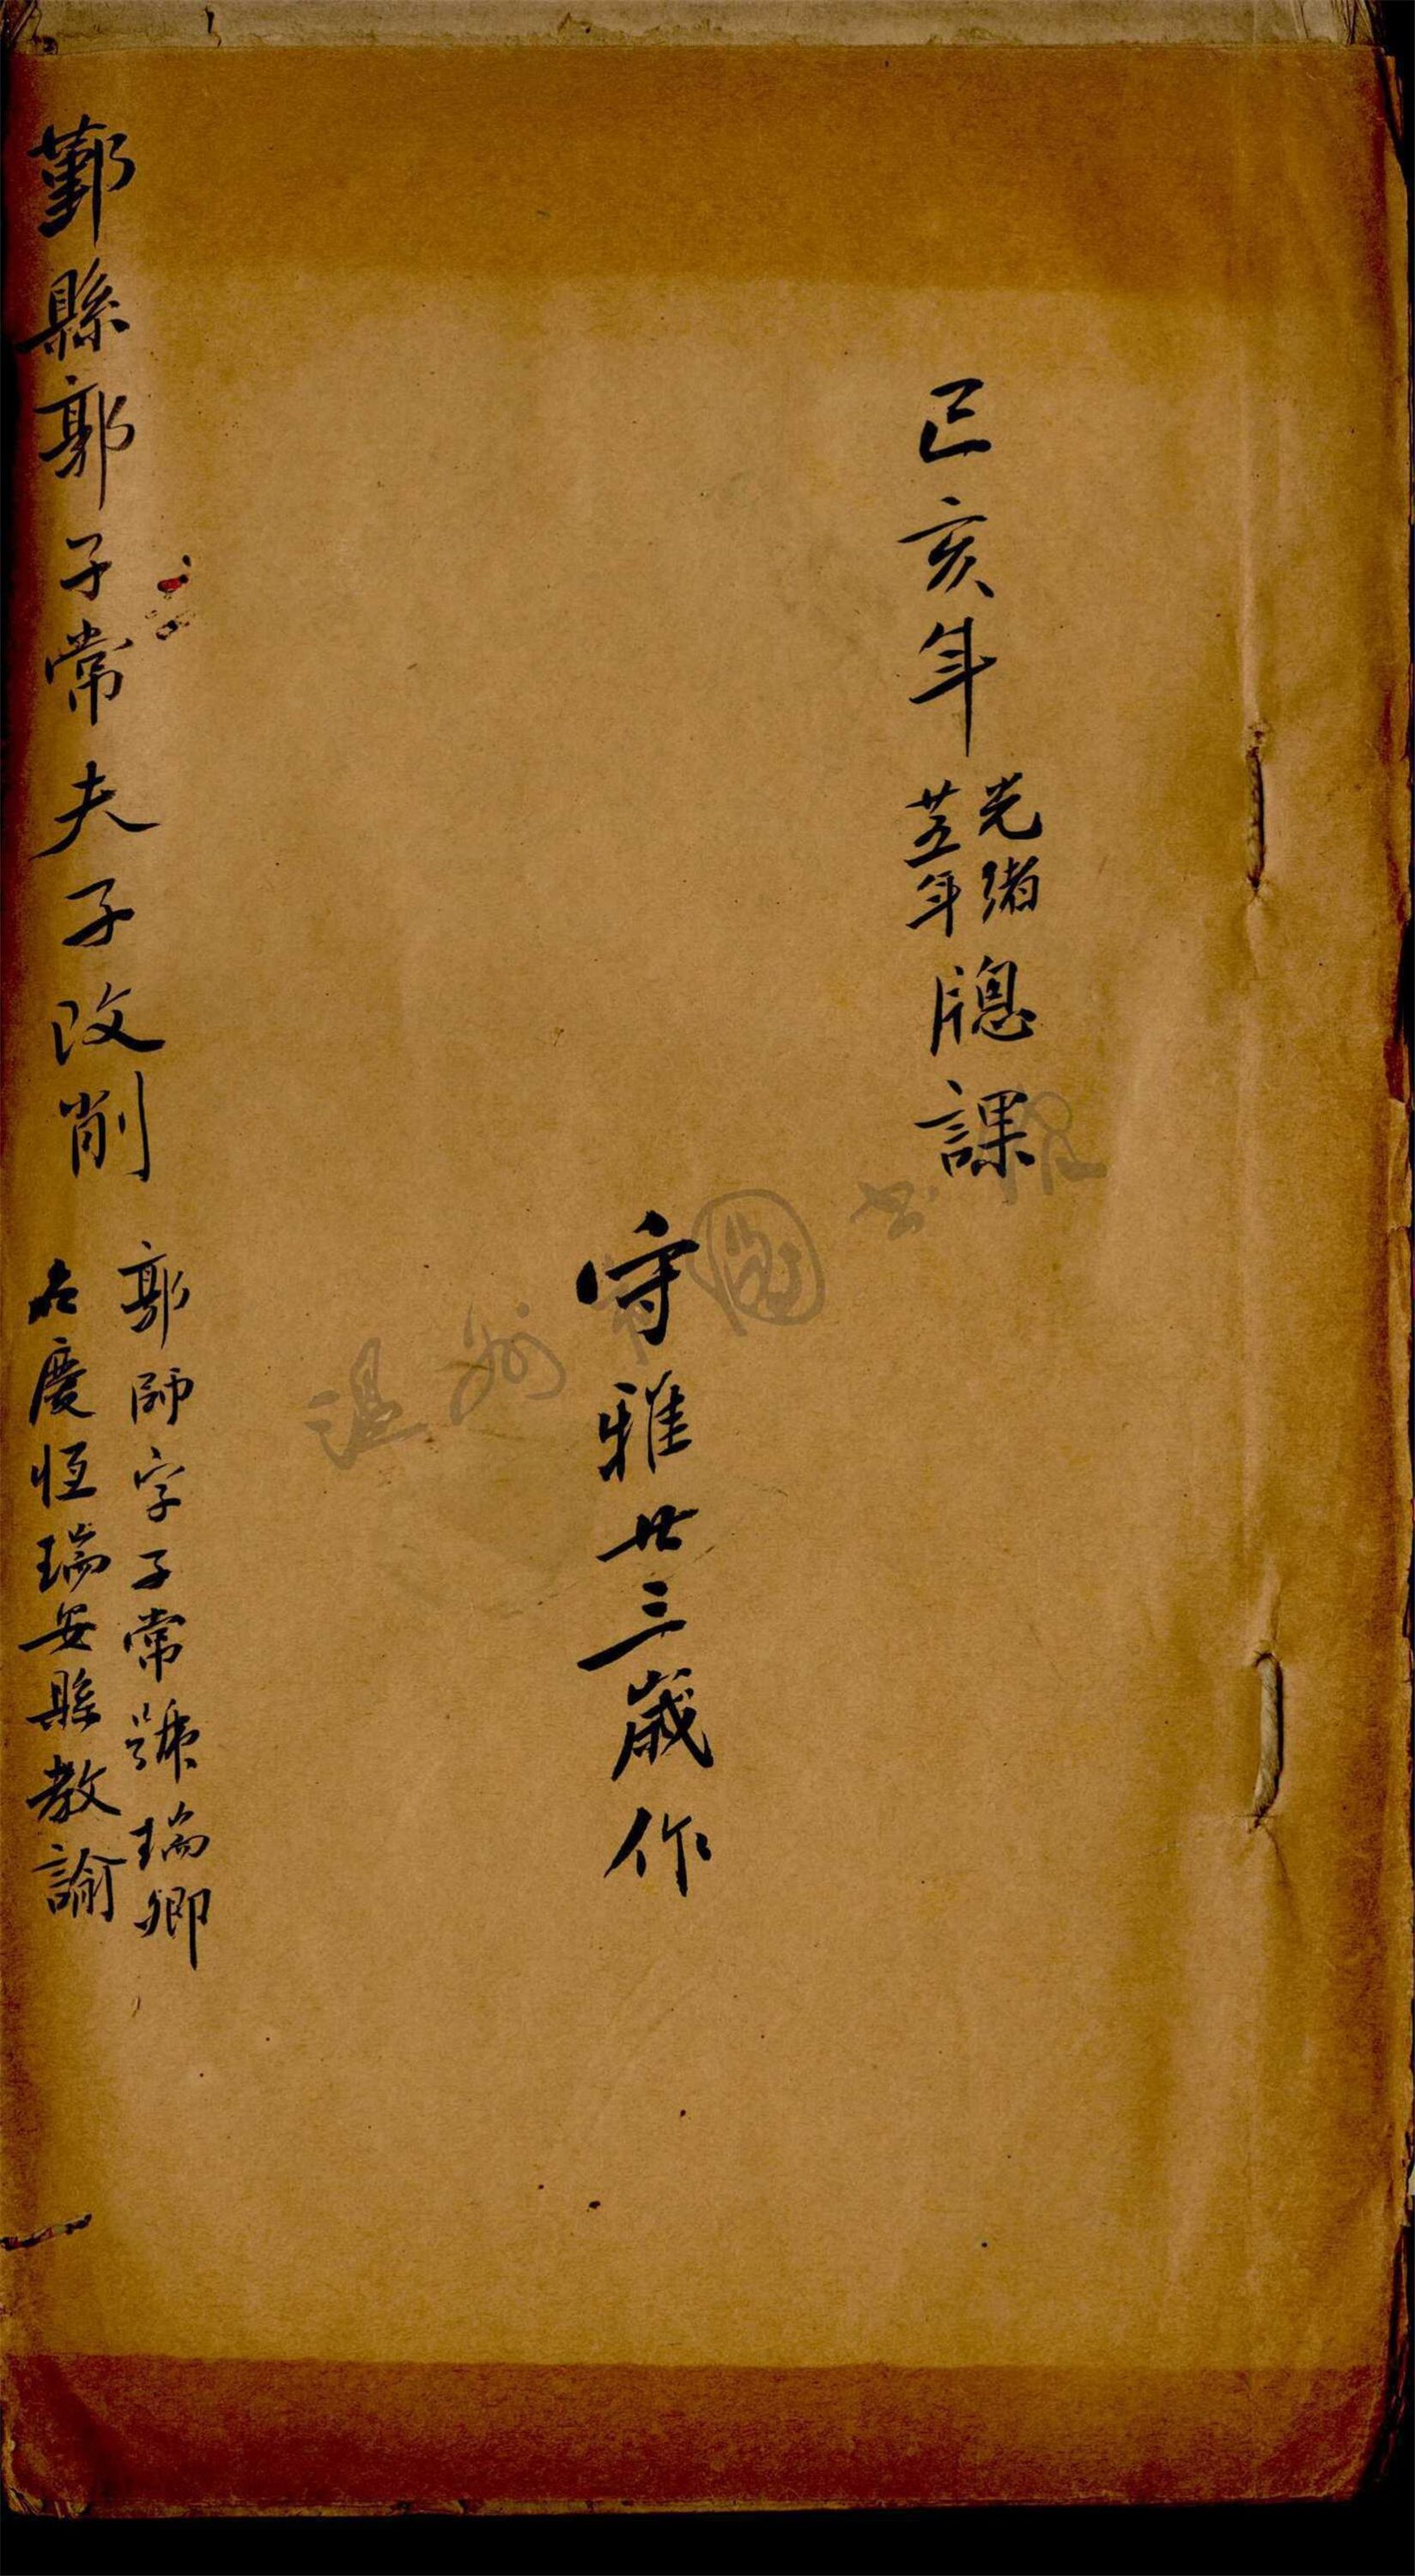 己亥年光緒廿五年牕課
守雅廿三歲作
鄞縣郭子常夫子改削
郭師字子常號瑞卿
名慶恆瑞安縣教諭
温州市圖书馆